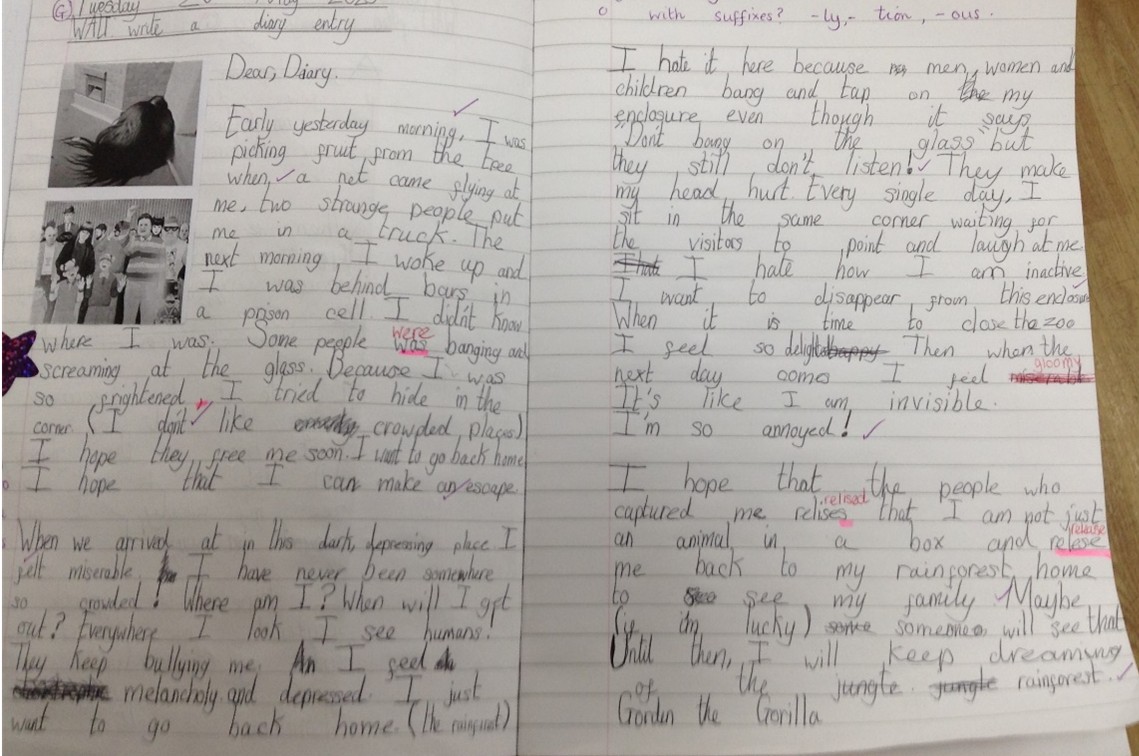 Tuesday
WALT write a diary entry
Dear, Diary.
Early yesterday morning, I was
picking fruit from the tree
when, a net came flying at
me, two strange people put
me in a truck. The
next morning I woke up and
I was behind bars in
a prison cell. I didn't know
where I was. Some people was were banging and
screaming at the glass. Because I was
so frightened, I tried to hide in the
corner. (I don't like crowded places)
I hope they free me soon. I want to go back home
I hope that I can make an escape
When we arrived at in this dark, depressing place I
felt miserable. I have never been somewhere
so crowded! Where am I? When will I get
out? Everywhere I look I see humans.
They keep bullying me. I feel
melancholy and depressed. I just
want to go back home. (the rainforest)
with suffixes? -ly, - tion, -ous.
I hate it here because men, women and
children bang and tap on the my
enclosure even though it says
"Dont bang on the glass" but
they still don't listen! They make
my head hurt. Every single day, I
sit in the same corner waiting for
the visitors to point and laugh at me.
I hate I hate how I am inactive
I want to disappear from this enclosure
When it is time to close the zoo
I feel so delight happy Then when the
next day comes I feel miserable gloomy
It's like I am invisible.
I'm so annoyed!
I hope that the people who
captured me relises relised that I am not just
an animal in a box and relese release
me back to my rainforest home
to see my family. Maybe
(if im lucky) some someone will see that
Until then, I will keep dreaming
of the jungte. jungle rainforest.
Gorden the Gorilla